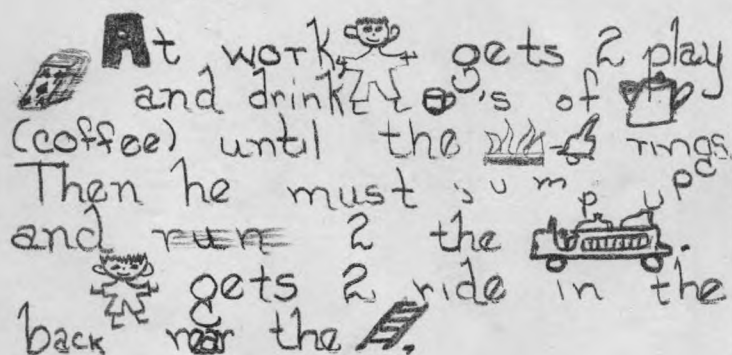 At work, gets 2 play
and drink 's of
(coffee) until the - rings.
Then he must jump up
and run 2 the .
gets 2 ride in the
back near the .